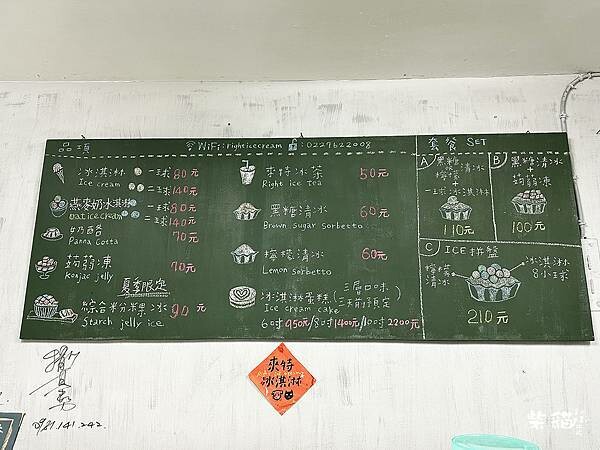 品項
WiFi:righticecream :0229622008
冰淇淋 一球80元
Ice cream 二球140元
燕麥奶冰淇淋 一球80元
Oat ice cream 二球140元
奶酪 70元
Panna Cotta
蒟蒻凍 70元
Konjac jelly
夏季限定
綜合粉粿冰 90元
Starch jelly ice
來特冰茶 50元
Right ice tea
黑糖清冰 60元
Brown sugar sorbetto
檸檬清冰 60元
Lemon sorbetto
冰淇淋蛋糕(三層口味 三天前預定)
Ice cream cake
6吋950元/8吋1400元/10吋2200元
套餐 SET
A 黑糖清冰
檸檬
+
一球冰淇淋
110元
B 黑糖清冰
+
蒟蒻凍
100元
C ICE拼盤
檸檬清冰
冰淇淋
8小球
210元
來特
冰淇淋
柴貓